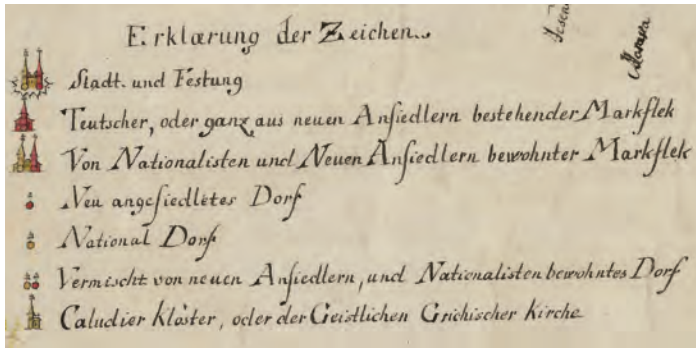 Erklærung der Zeichen..
Stadt. und Festung
Teutscher, oder ganz aus neuen Ansiedlern bestehender Markflek
Von Nationalisten und Neuen Ansiedlern bewohnter Markflek
Neu angesiedletes Dorf
National Dorf
Vermischt von neuen Ansiedlern, und Nationalisten bewohntes Dorf
Caludier Klöster, oder der Geistlichen Grichischer Kirche